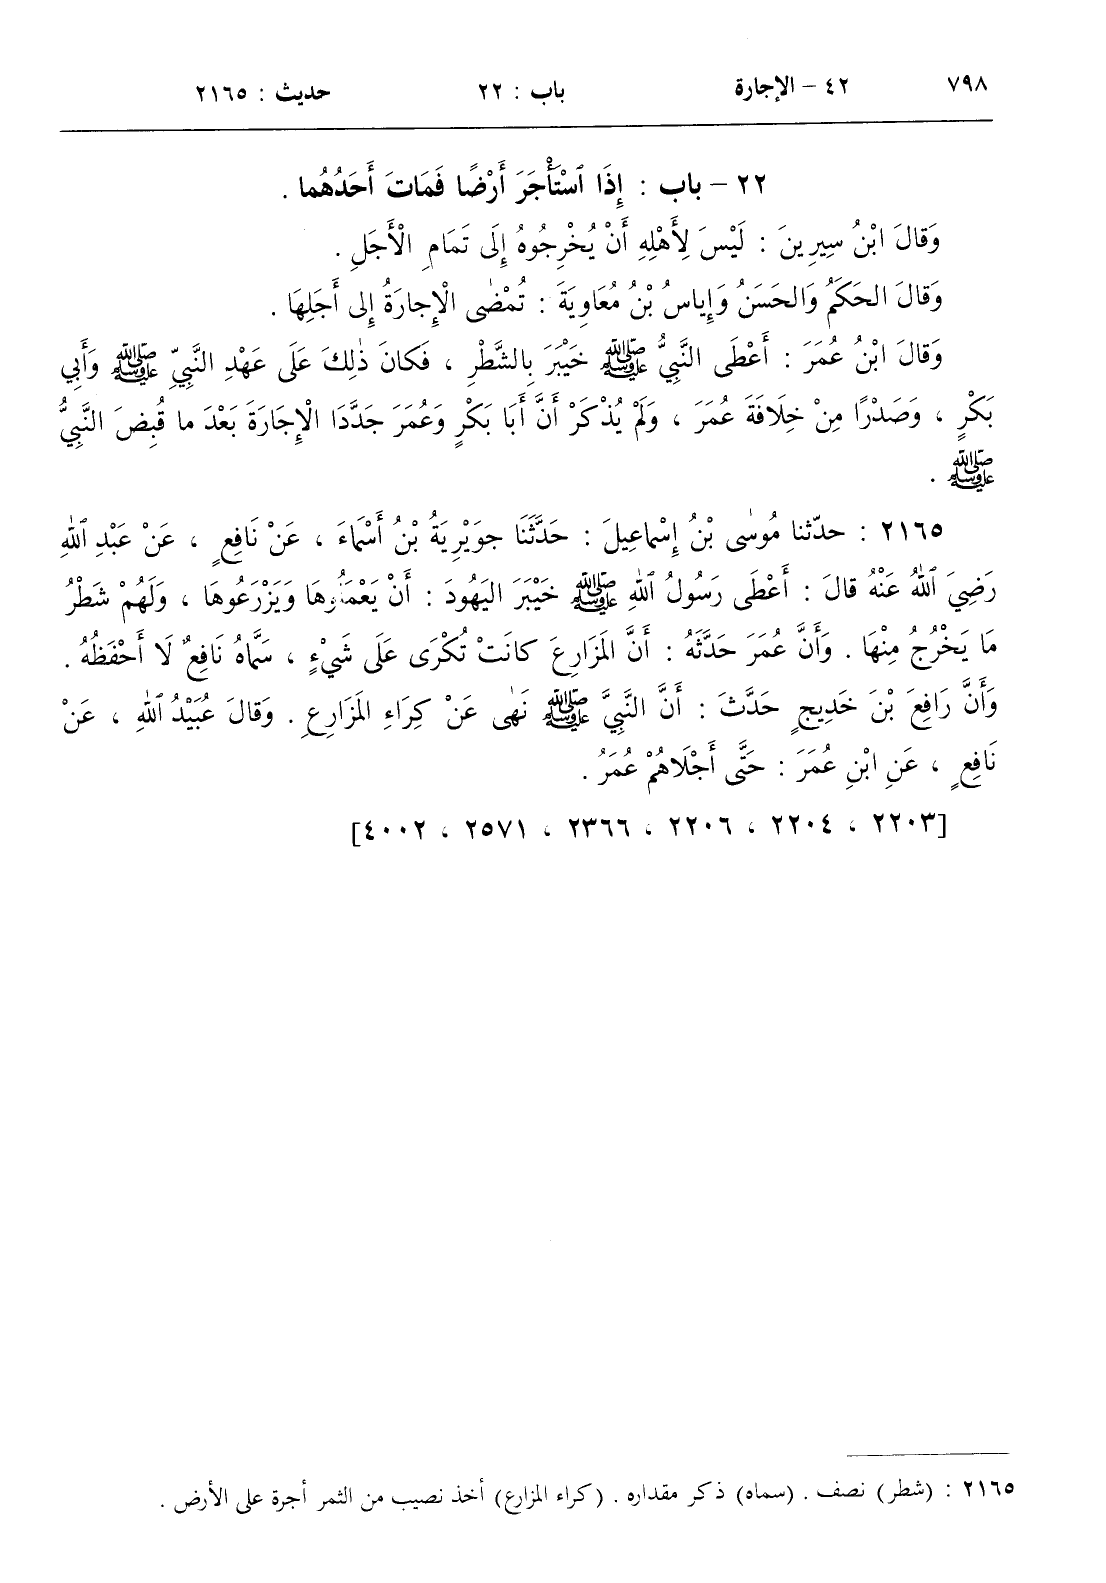 ٧٩٨ ٤٢ – الإجارة باب : ٢٢ حديث : ٢١٦٥
٢٢ – باب : إِذَا ٱسْتَأْجَرَ أَرْضًا فَمَاتَ أَحَدُهُما .
وَقالَ ابْنُ سِيرِينَ : لَيْسَ لِأَهْلِهِ أَنْ يُخْرِجُوهُ إِلَى تَمَامِ الْأَجَلِ .
وَقالَ الحَكَمُ وَالحَسَنُ وَإِياسُ بْنُ مُعَاوِيَةَ : تُمْضٰى الْإِجارَةُ إِلى أَجَلِهَا .
وَقالَ ابْنُ عُمَرَ : أَعْطَى النَّبِيُّ ﷺ خَيْبَرَ بِالشَّطْرِ ، فَكانَ ذٰلِكَ عَلَى عَهْدِ النَّبِيِّ ﷺ وَأَبِي
بَكْرٍ ، وَصَدْرًا مِنْ خِلَافَةِ عُمَرَ ، وَلَمْ يُذْكَرْ أَنَّ أَبَا بَكْرٍ وَعُمَرَ جَدَّدَا الْإِجَارَةَ بَعْدَ ما قُبِضَ النَّبِيُّ
ﷺ .
٢١٦٥ : حدّثنا مُوسٰى بْنُ إِسْماعِيلَ : حَدَّثَنَا جوَيْرِيَةُ بْنُ أَسْمَاءَ ، عَنْ نَافِعٍ ، عَنْ عَبْدِ ٱللهِ
رَضِيَ ٱللهُ عَنْهُ قالَ : أَعْطَى رَسُولُ ٱللهِ ﷺ خَيْبَرَ اليَهُودَ : أَنْ يَعْمَلُوهَا وَيَزْرَعُوهَا ، وَلَهُمْ شَطْرُ
مَا يَخْرُجُ مِنْهَا . وَأَنَّ عُمَرَ حَدَّثَهُ : أَنَّ المَزَارِعَ كانَتْ تُكْرَى عَلَى شَيْءٍ ، سَمَّاهُ نَافِعٌ لَا أَحْفَظُهُ .
وَأَنَّ رَافِعَ بْنَ خَدِيجٍ حَدَّثَ : أَنَّ النَّبِيَّ ﷺ نَهٰى عَنْ كِرَاءِ المَزَارِعِ . وَقالَ عُبَيْدُ ٱللهِ ، عَنْ
نَافِعٍ ، عَنِ ابْنِ عُمَرَ : حَتَّى أَجْلَاهُمْ عُمَرُ .
[٢٢٠٣ ، ٢٢٠٤ ، ٢٢٠٦ ، ٢٣٦٦ ، ٢٥٧١ ، ٤٠٠٢]
٢١٦٥ : (شطر) نصف . (سماه) ذكر مقداره . (كراء المزارع) أخذ نصيب من الثمر أجرة على الأرض .